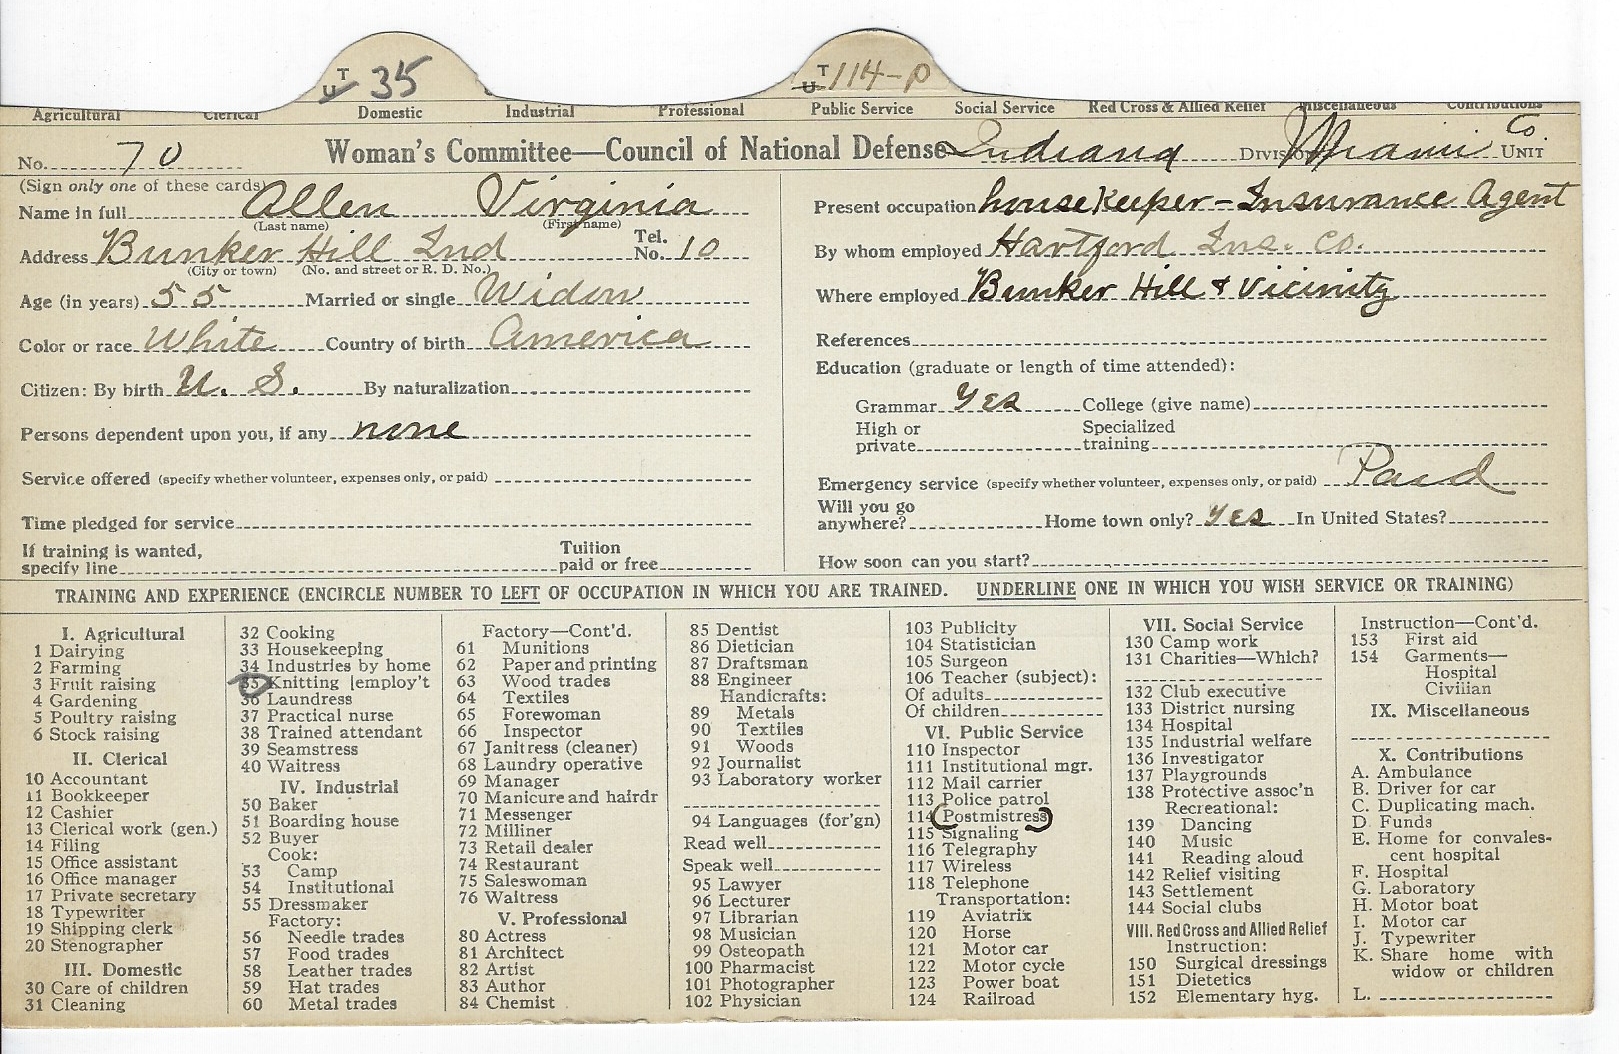 T
U 35
T
U 114-P
Agricultural Clerical Domestic Industrial Professional Public Service Social Service Red Cross & Allied Relief Miscellaneous Contributions
No. 70 Woman's Committee—Council of National Defense Indiana DIVISION Miami Co. UNIT
(Sign only one of these cards)
Name in full Allen Virginia
(Last name) (First name)
Address Bunker Hill Ind Tel. No. 10
(City or town) (No. and street or R. D. No.)
Age (in years) 55 Married or single Widow
Color or race White Country of birth America
Citizen: By birth U. S. By naturalization
Persons dependent upon you, if any none
Service offered (specify whether volunteer, expenses only, or paid)
Time pledged for service
If training is wanted, specify line Tuition paid or free
Present occupation housekeeper - Insurance Agent
By whom employed Hartford Ins. Co.
Where employed Bunker Hill & Vicinity
References
Education (graduate or length of time attended):
Grammar Yes College (give name)
High or private Specialized training
Emergency service (specify whether volunteer, expenses only, or paid) Paid
Will you go anywhere? Home town only? Yes In United States?
How soon can you start?
TRAINING AND EXPERIENCE (ENCIRCLE NUMBER TO LEFT OF OCCUPATION IN WHICH YOU ARE TRAINED. UNDERLINE ONE IN WHICH YOU WISH SERVICE OR TRAINING)
I. Agricultural
1 Dairying
2 Farming
3 Fruit raising
4 Gardening
5 Poultry raising
6 Stock raising
II. Clerical
10 Accountant
11 Bookkeeper
12 Cashier
13 Clerical work (gen.)
14 Filing
15 Office assistant
16 Office manager
17 Private secretary
18 Typewriter
19 Shipping clerk
20 Stenographer
III. Domestic
30 Care of children
31 Cleaning
32 Cooking
33 Housekeeping
34 Industries by home
35 Knitting [employ't
36 Laundress
37 Practical nurse
38 Trained attendant
39 Seamstress
40 Waitress
IV. Industrial
50 Baker
51 Boarding house
52 Buyer
Cook:
53 Camp
54 Institutional
55 Dressmaker
Factory:
56 Needle trades
57 Food trades
58 Leather trades
59 Hat trades
60 Metal trades
Factory—Cont'd.
61 Munitions
62 Paper and printing
63 Wood trades
64 Textiles
65 Forewoman
66 Inspector
67 Janitress (cleaner)
68 Laundry operative
69 Manager
70 Manicure and hairdr
71 Messenger
72 Milliner
73 Retail dealer
74 Restaurant
75 Saleswoman
76 Waitress
V. Professional
80 Actress
81 Architect
82 Artist
83 Author
84 Chemist
85 Dentist
86 Dietician
87 Draftsman
88 Engineer
Handicrafts:
89 Metals
90 Textiles
91 Woods
92 Journalist
93 Laboratory worker
94 Languages (for'gn)
Read well
Speak well
95 Lawyer
96 Lecturer
97 Librarian
98 Musician
99 Osteopath
100 Pharmacist
101 Photographer
102 Physician
103 Publicity
104 Statistician
105 Surgeon
106 Teacher (subject):
Of adults
Of children
VI. Public Service
110 Inspector
111 Institutional mgr.
112 Mail carrier
113 Police patrol
114 Postmistress
115 Signaling
116 Telegraphy
117 Wireless
118 Telephone
Transportation:
119 Aviatrix
120 Horse
121 Motor car
122 Motor cycle
123 Power boat
124 Railroad
VII. Social Service
130 Camp work
131 Charities—Which?
132 Club executive
133 District nursing
134 Hospital
135 Industrial welfare
136 Investigator
137 Playgrounds
138 Protective assoc'n
Recreational:
139 Dancing
140 Music
141 Reading aloud
142 Relief visiting
143 Settlement
144 Social clubs
VIII. Red Cross and Allied Relief
Instruction:
150 Surgical dressings
151 Dietetics
152 Elementary hyg.
Instruction—Cont'd.
153 First aid
154 Garments—
Hospital
Civilian
IX. Miscellaneous
X. Contributions
A. Ambulance
B. Driver for car
C. Duplicating mach.
D. Funds
E. Home for convales-
cent hospital
F. Hospital
G. Laboratory
H. Motor boat
I. Motor car
J. Typewriter
K. Share home with
widow or children
L.